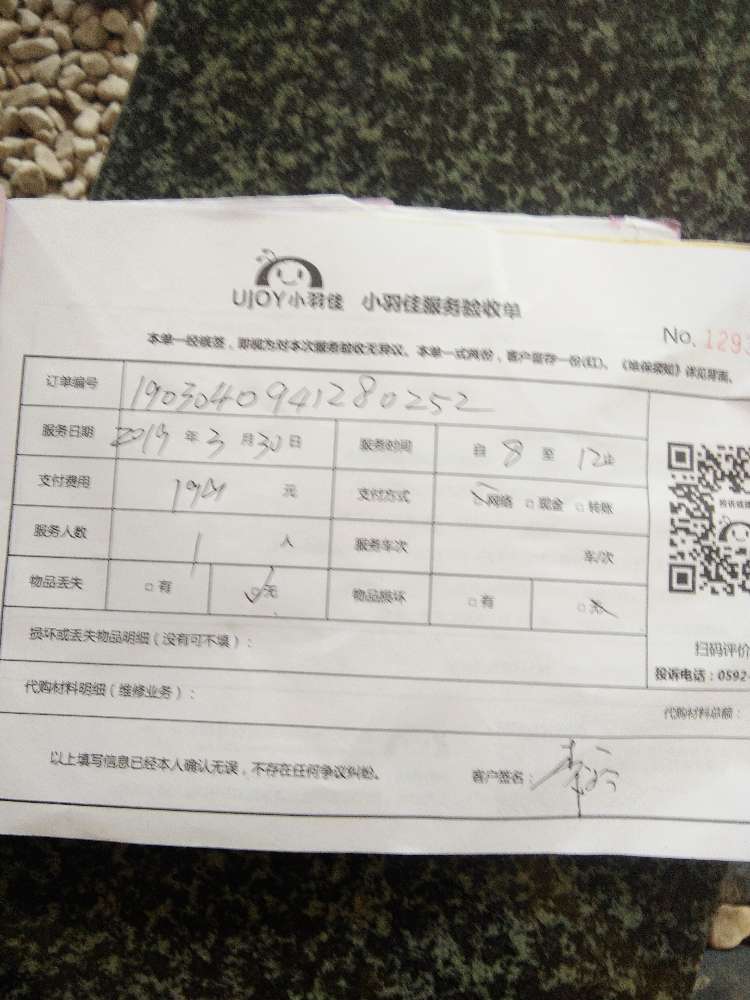 UJOY小羽佳 小羽佳服务验收单
No. 1293
本单一经核签，即视为对本次服务验收无异议。本单一式两份，客户留存一份(红)。《维保须知》详见背面。
订单编号 1903040941280252
服务日期 2019 年 3 月 30 日 服务时间 自 8 至 12 止
支付费用 元 支付方式 网络 □ 现金 □ 转账
服务人数 1 人 服务车次 车/次
物品丢失 □ 有 □ 无 物品损坏 □ 有 □ 无
损坏或丢失物品明细（没有可不填）：
扫码评价
投诉电话：0592-
代购材料明细（维修业务）：
代购材料总额：
以上填写信息已经本人确认无误，不存在任何争议纠纷。 客户签名：